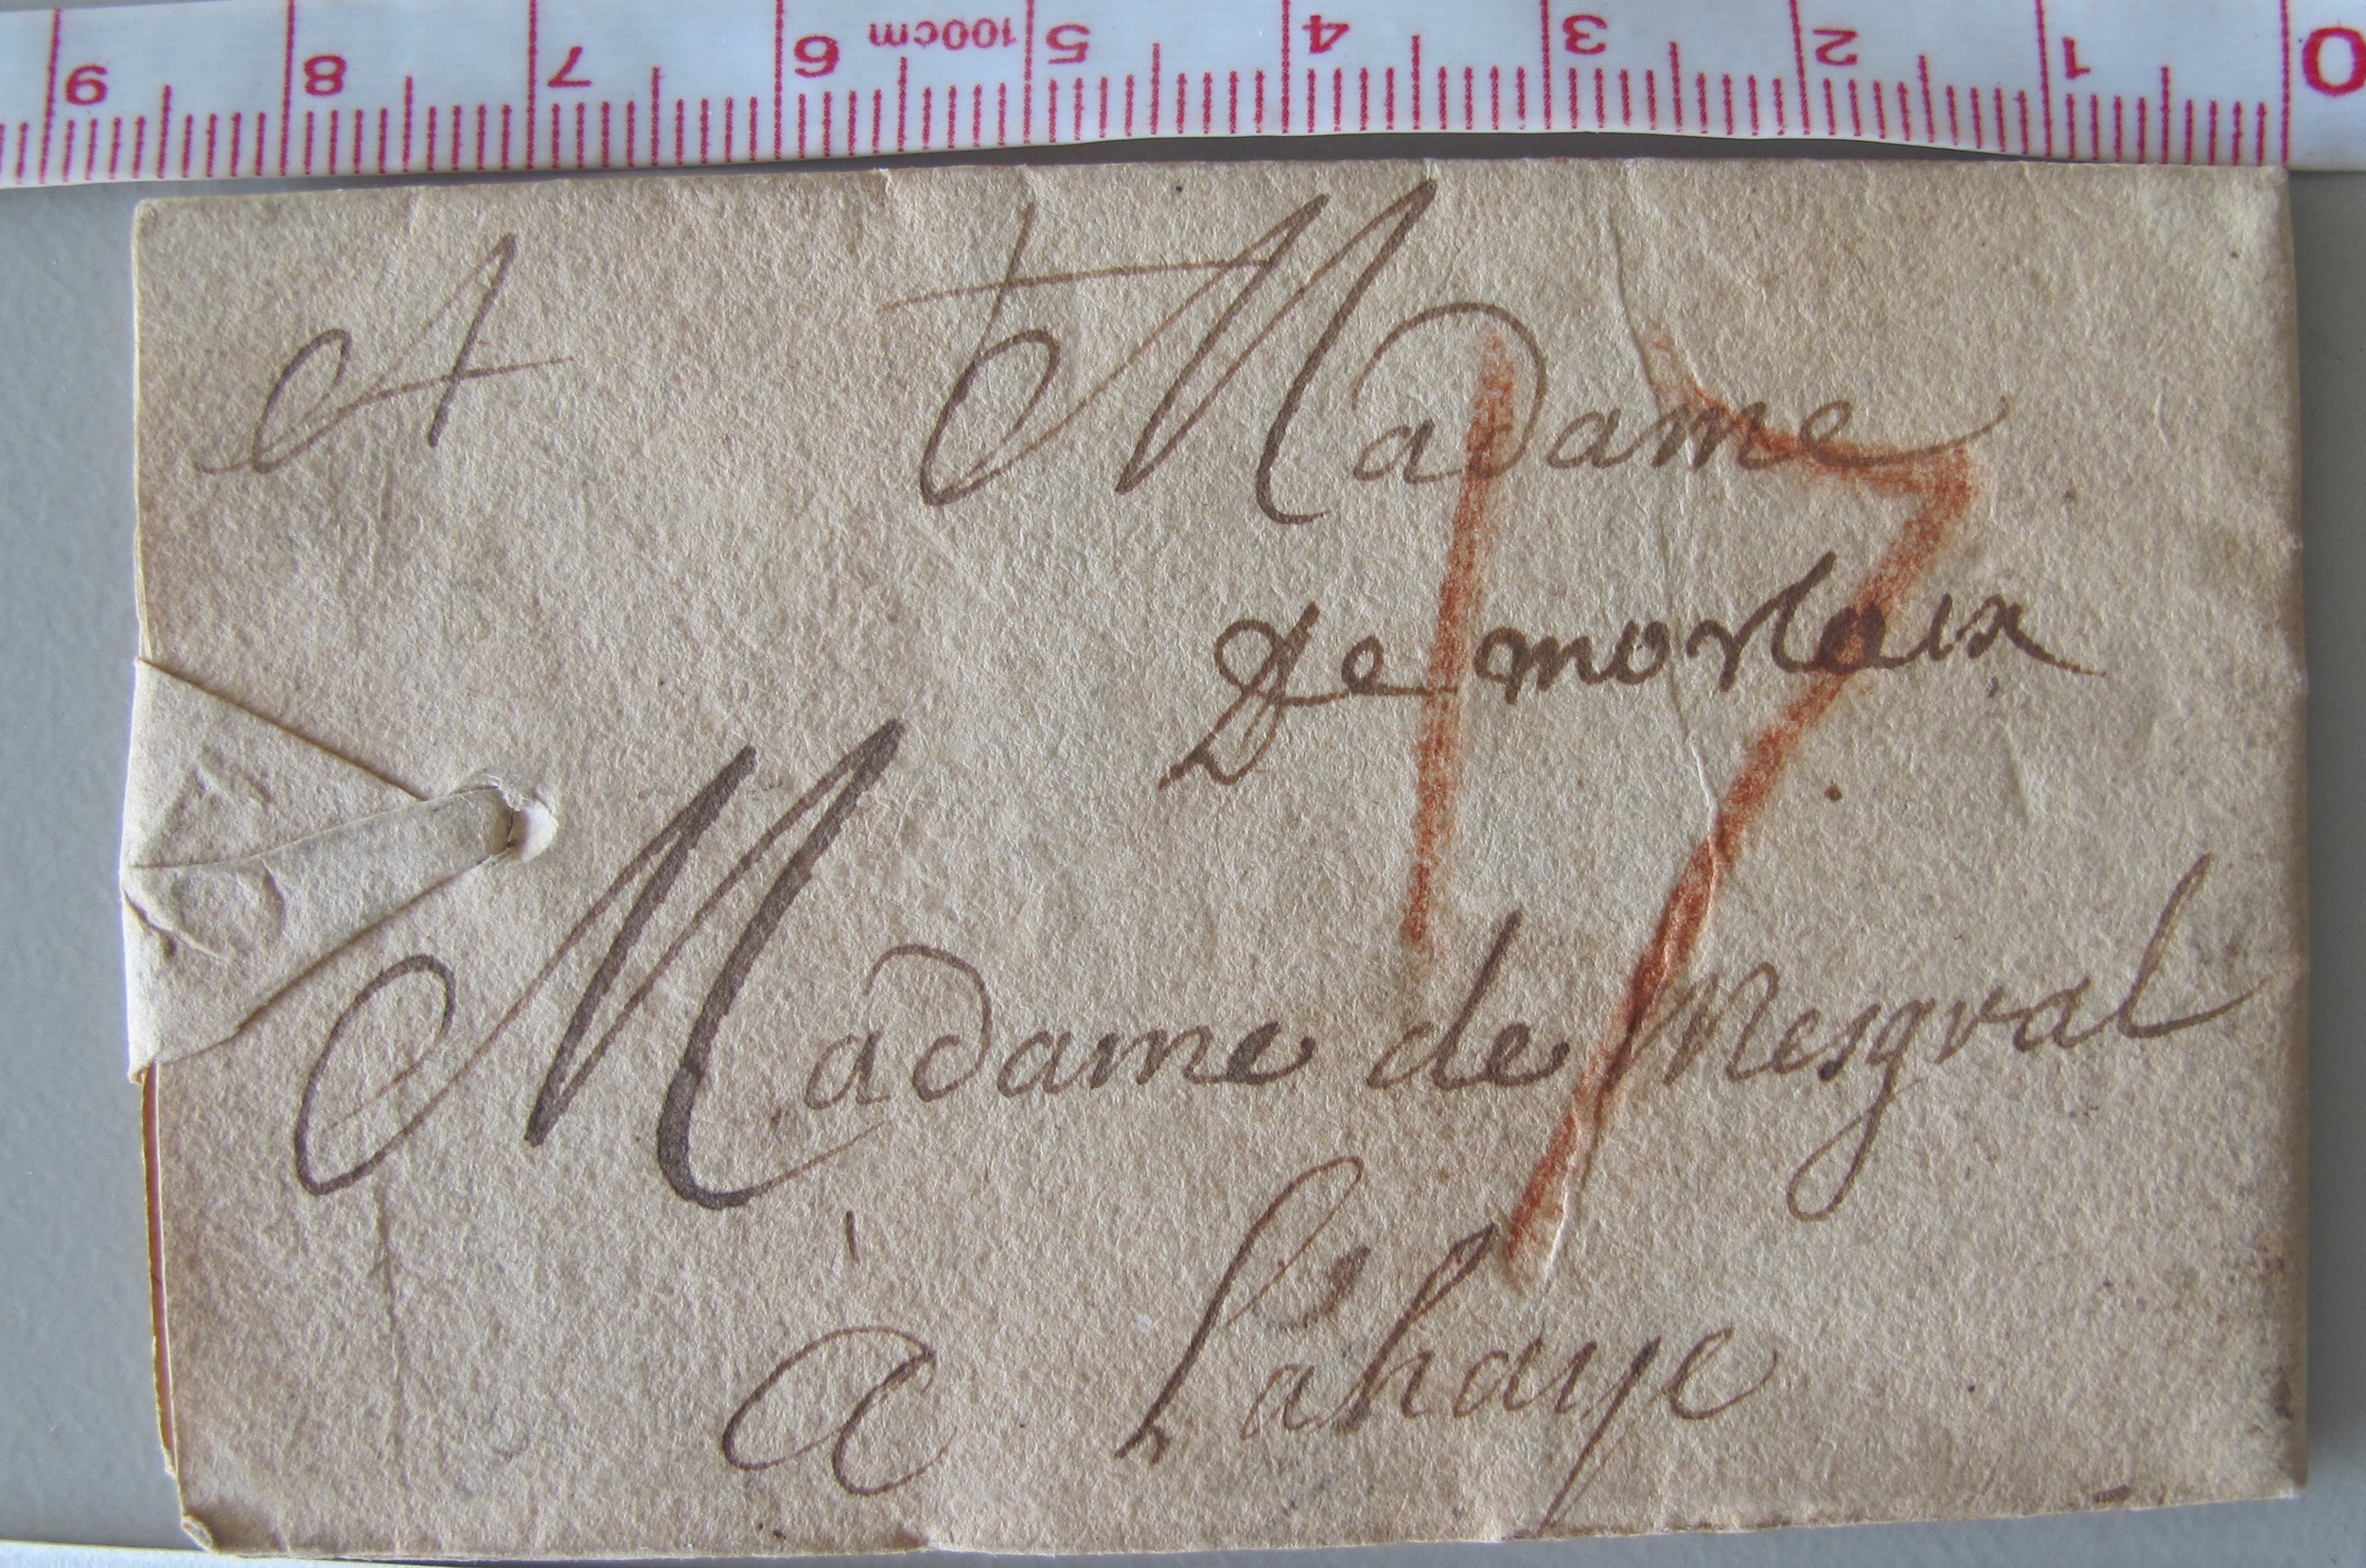 0 1 2 3 4 5 100cm 6 7 8 9
A Madame
De morlaix
17
Madame de Mesgral
à Lahaye